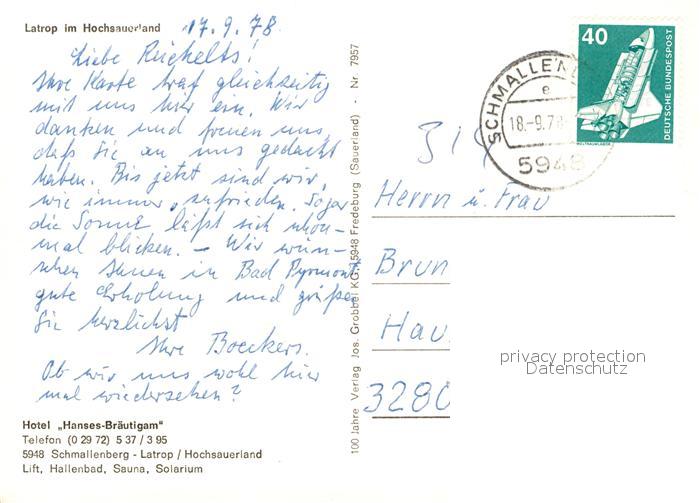 Latrop im Hochsauerland 17.9.78
Liebe Rückelts!
Ihre Karte traf gleichzeitig
mit uns hier ein. Wir
danken und freuen uns,
daß Sie an uns gedacht
haben. Bis jetzt sind wir,
wie immer, zufrieden. Sogar
die Sonne läßt sich schon-
mal blicken. – Wir wün-
schen Ihnen in Bad Pyrmont
gute Erholung und grüßen
Sie herzlichst
Ihre Boeckers.
Ob wir uns wohl hier
mal wiedersehen?
Hotel „Hanses-Bräutigam“
Telefon (0 29 72) 5 37 / 3 95
5948 Schmallenberg - Latrop / Hochsauerland
Lift, Hallenbad, Sauna, Solarium
100 Jahre Verlag Jos. Grobbel KG, 5948 Fredeburg (Sauerland) - Nr. 7957
40
DEUTSCHE BUNDESPOST
WELTRAUMLABOR
SCHMALLENB
e
18.-9.78
5948
Herrn u. Frau
Brun
Hau
3280
privacy protection
Datenschutz